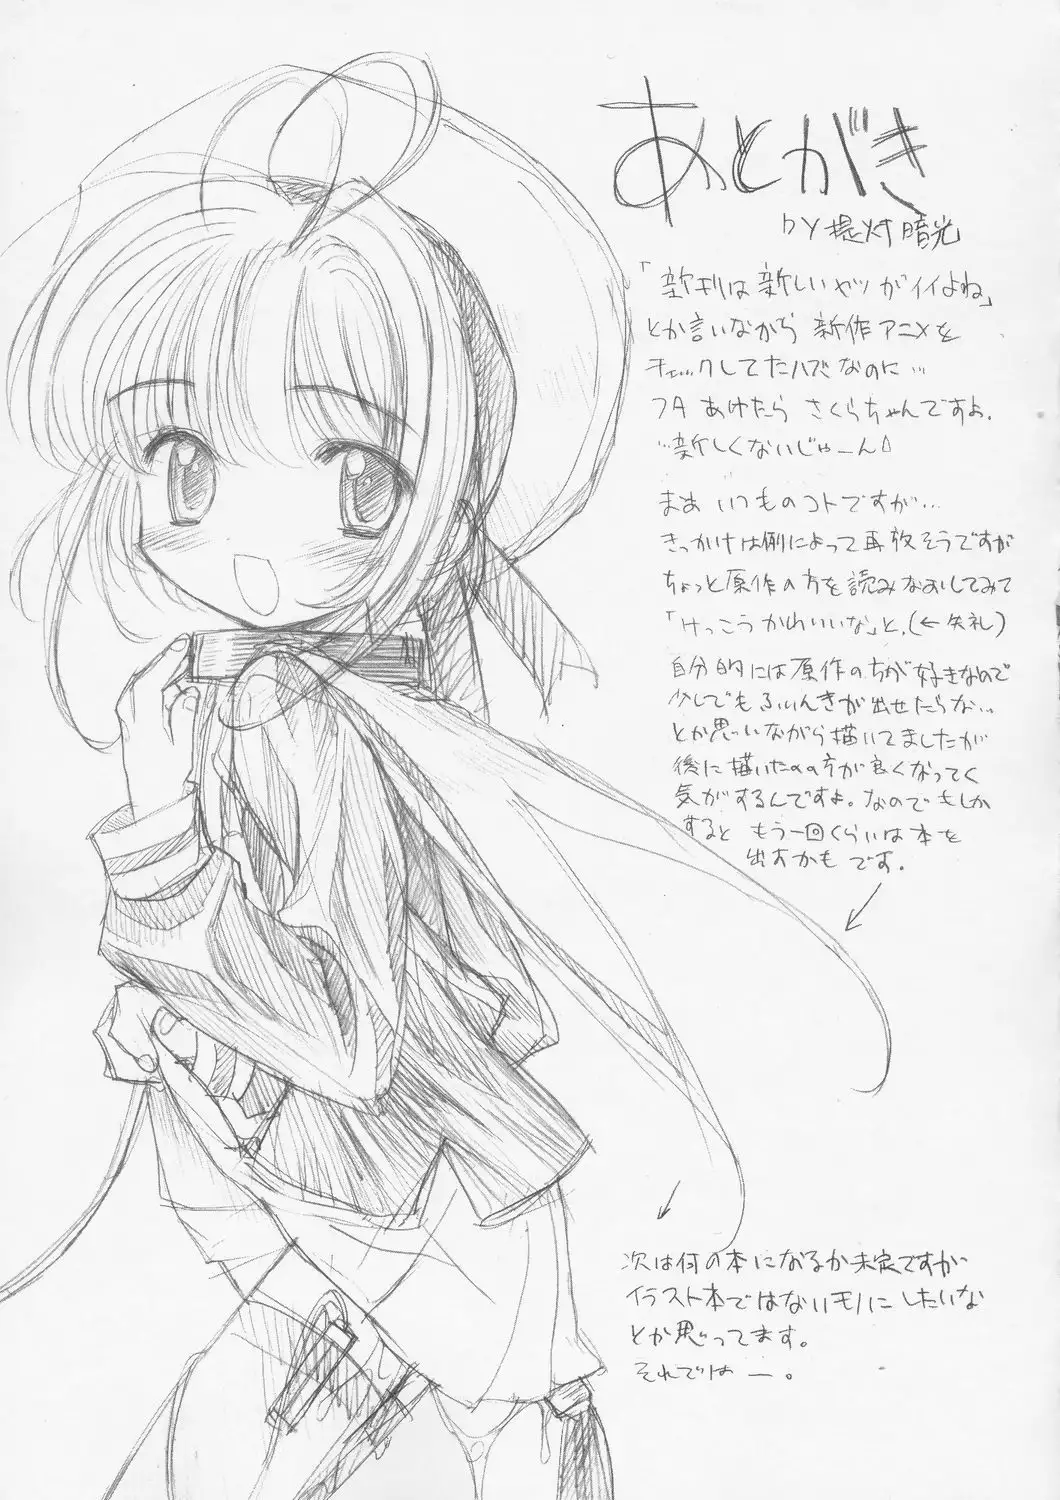 あとがき
by 提灯暗光
「新刊は新しいヤツがイイよね」
とか言いながら 新作アニメを
チェックしてたハズなのに…
フタあけたら さくらちゃんですよ.
…新しくないじゃーん
まぁ いつものコトですが…
きっかけは例によって再放そうですが
ちょっと原作の方を読みなおしてみて
「けっこうかわいいな」と.(←失礼)
自分的には原作のちが好きなので
少しでも ふいんきが出せたらな…
とか思いながら描いてましたが
後に描いたのの方が良くなってく
気がするんですよ。なのでもしか
すると もう一回くらいは本を
出すかも です。
次は何の本になるか未定ですが
イラスト本ではないモノにしたいな
とか思ってます。
それではー。